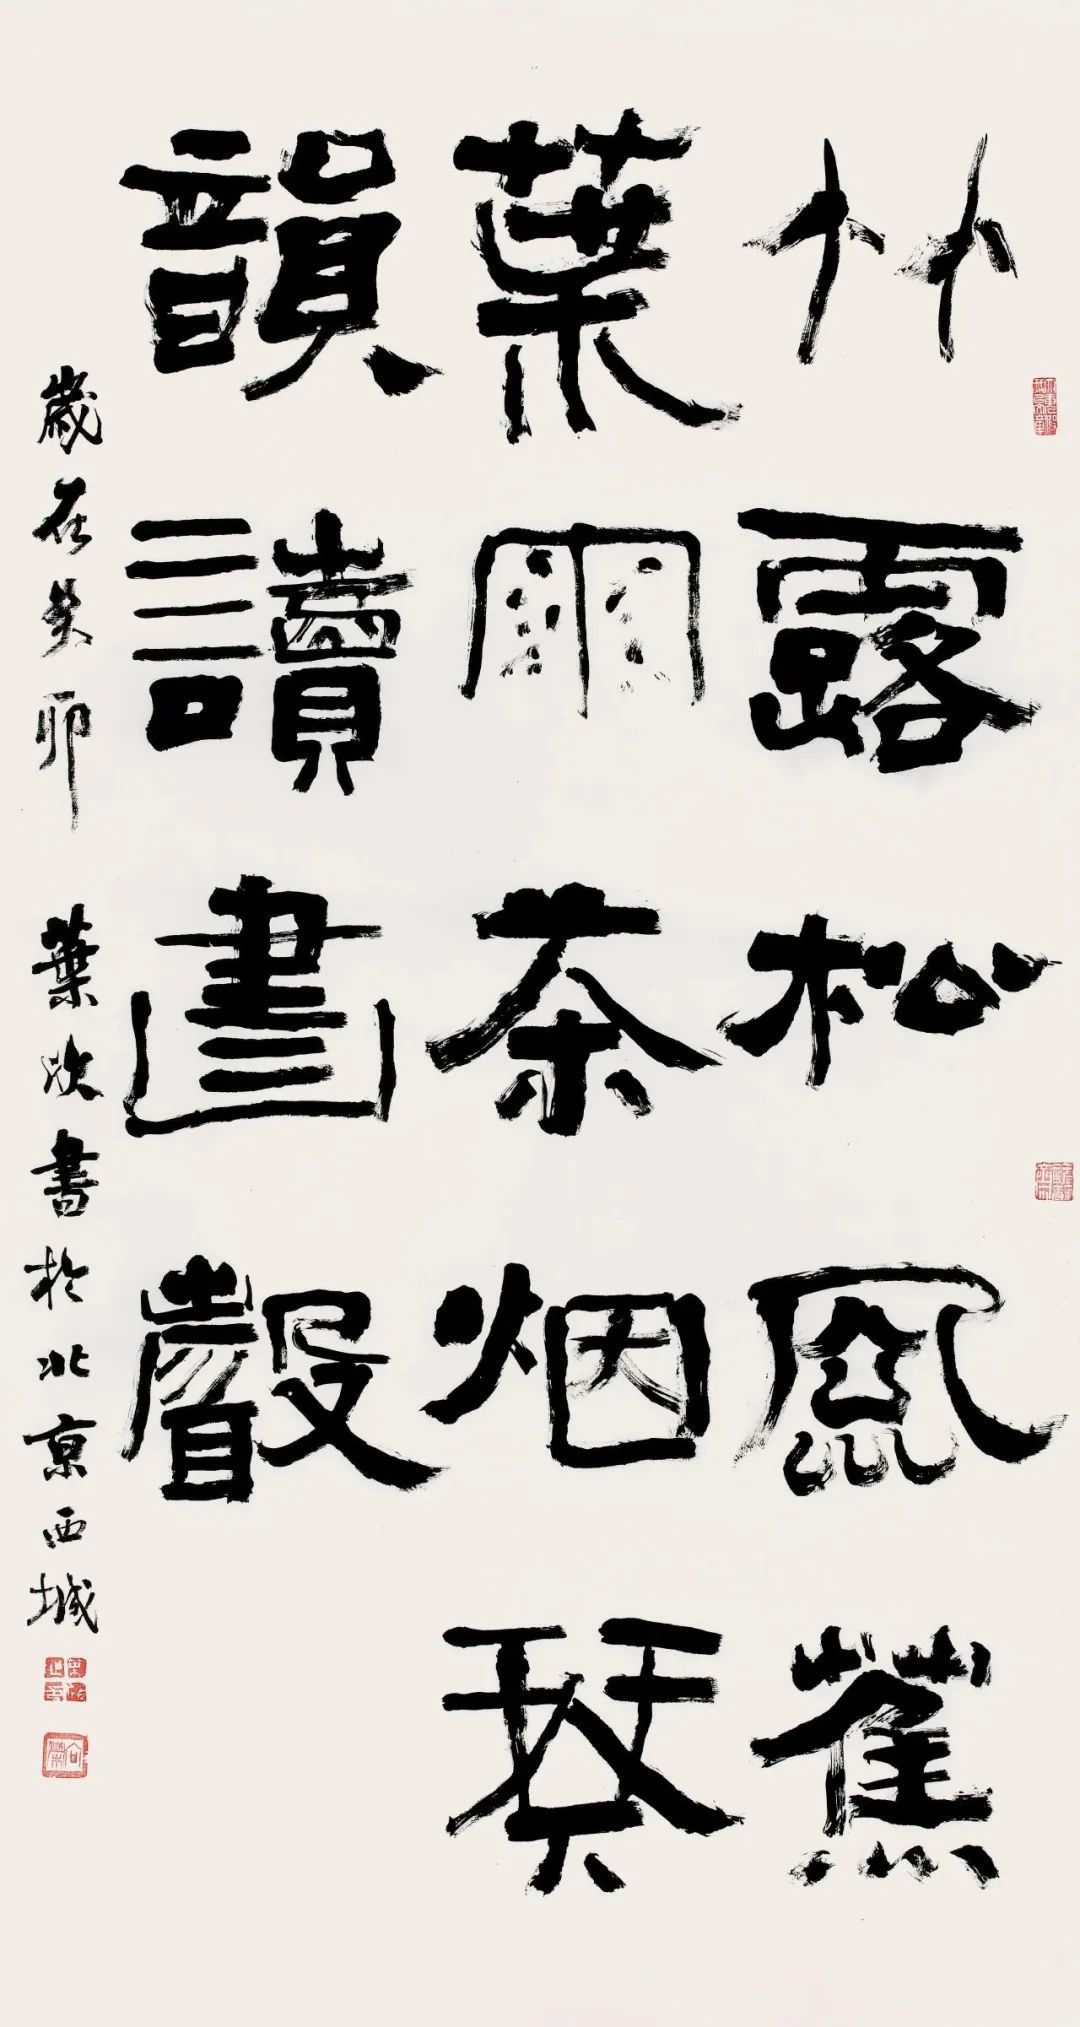 竹露松風蕉
葉雨茶烟琴
韻讀書聲
歲在癸卯 葉欣書於北京西城